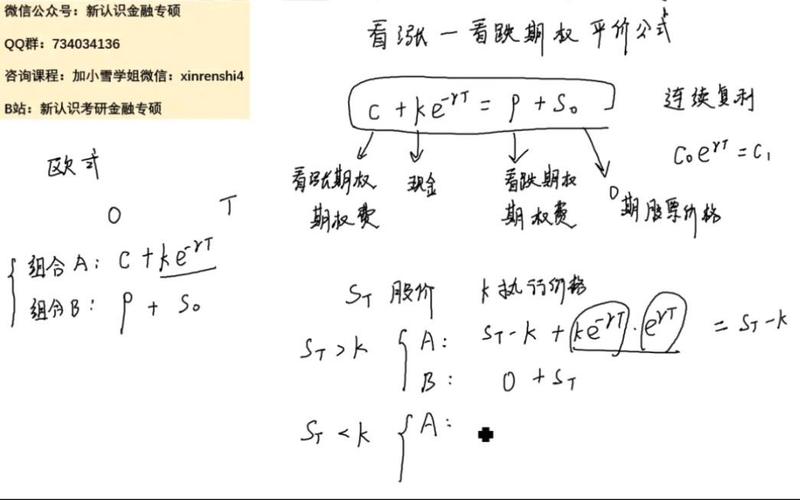 微信公众号：新认识金融专硕
QQ群：734034136
咨询课程：加小雪学姐微信：xinrenshi4
B站：新认识考研金融专硕
看涨—看跌期权平价公式
c + ke^{-rT} = p + S₀
连续复利
C₀e^{rT} = C₁
看涨期权
期权费
现金
看跌期权
期权费
0期股票价格
欧式
0 T
组合A: c + ke^{-rT}
组合B: p + S₀
S_T 股价 k 执行价格
S_T > k { A: S_T - k + ke^{-rT} · e^{rT} = S_T - k
B: 0 + S_T
S_T < k { A: